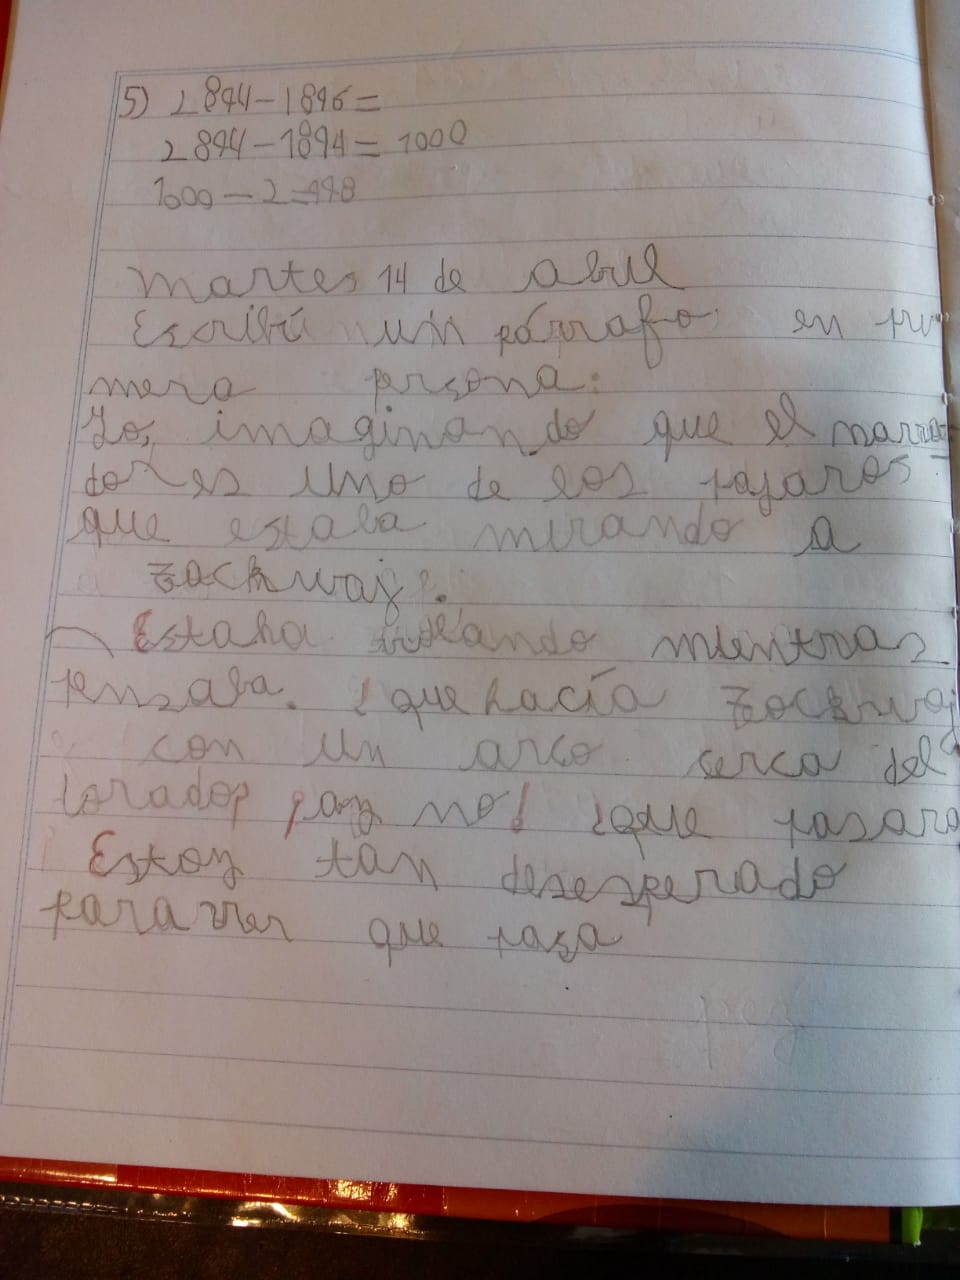 5) 2894-1896=
2894-1894= 1000
1000-2=998
Martes 14 de abril
Escribí un párrafo en pri
mera persona:
Yo, imaginando que el narra
dor es uno de los pajaros
que estaba mirando a
Zackway.
Estaba mientras
pensaba. ¿que hacía Zockway
con un arco serca del
lorado? ¡oy no! ¿que pasara
Estoy tan desesperado
para ver que pasa